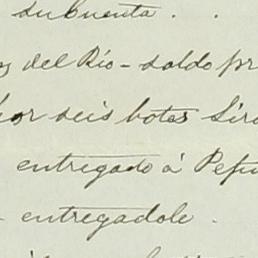 su cuenta . .
del Rio - saldo
por seis botes
entregado á
entregadole .